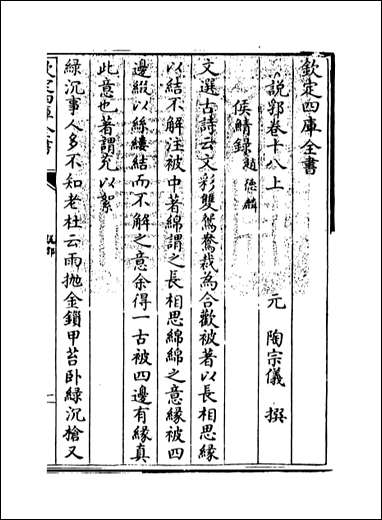 欽定四庫全書
說郛卷十八上
元 陶宗儀 撰
侯鯖録 趙德麟
文選古詩云文彩雙鴛鴦裁為合歡被著以長相思緣
以結不解注被中著綿謂之長相思綿綿之意緣被四
邊綴以絲縷結而不解之意余得一古被四邊有緣真
此意也著謂充以絮
緑沉事人多不知老杜云雨抛金鎖甲苔卧緑沉槍又
欽定四庫全書
說郛